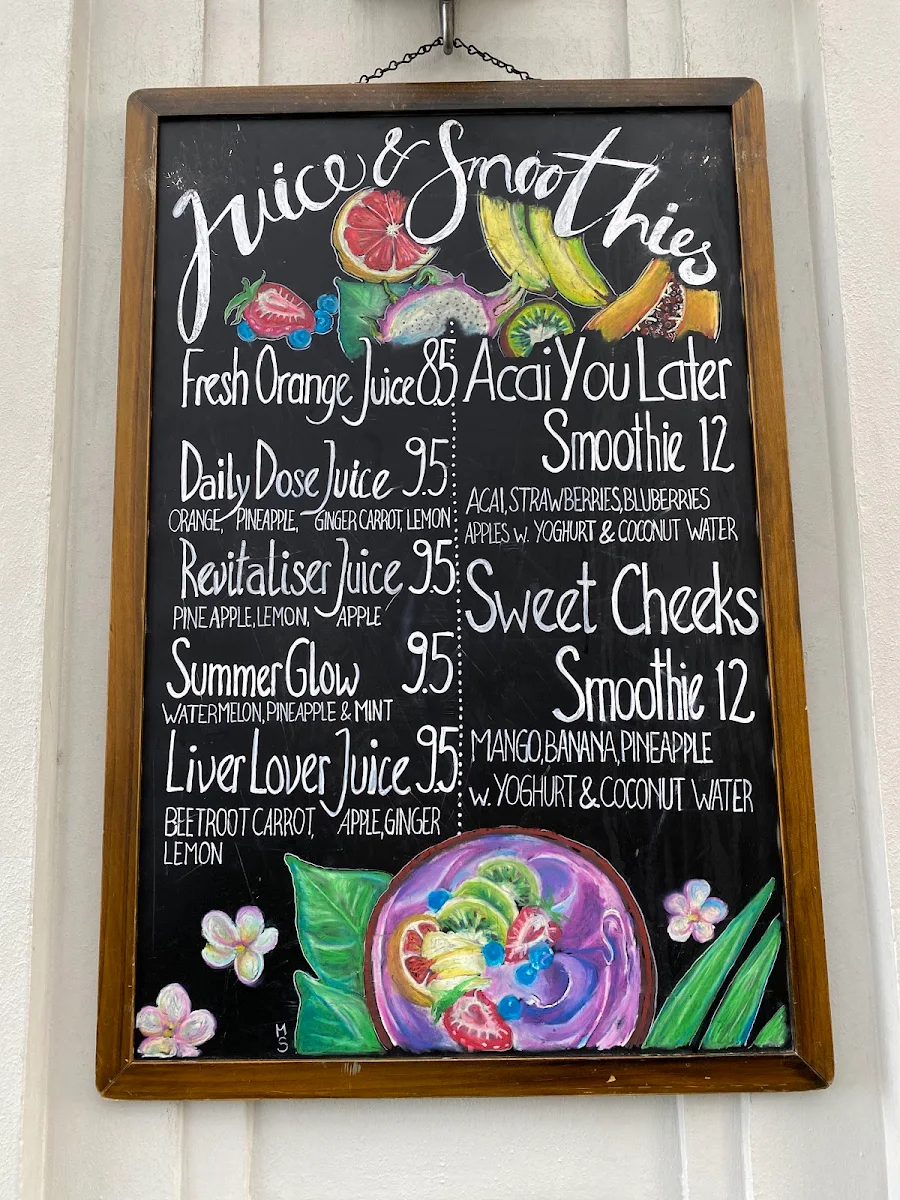 Juice & Smoothies
Fresh Orange Juice 8.5
Daily Dose Juice 9.5
ORANGE, PINEAPPLE, GINGER CARROT, LEMON
Revitaliser Juice 9.5
PINEAPPLE, LEMON, APPLE
Summer Glow 9.5
WATERMELON, PINEAPPLE & MINT
Liver Lover Juice 9.5
BEETROOT CARROT, APPLE, GINGER
LEMON
Acai You Later
Smoothie 12
ACAI, STRAWBERRIES, BLUBERRIES
APPLES w. YOGHURT & COCONUT WATER
Sweet Cheeks
Smoothie 12
MANGO, BANANA, PINEAPPLE
w. YOGHURT & COCONUT WATER
M
S